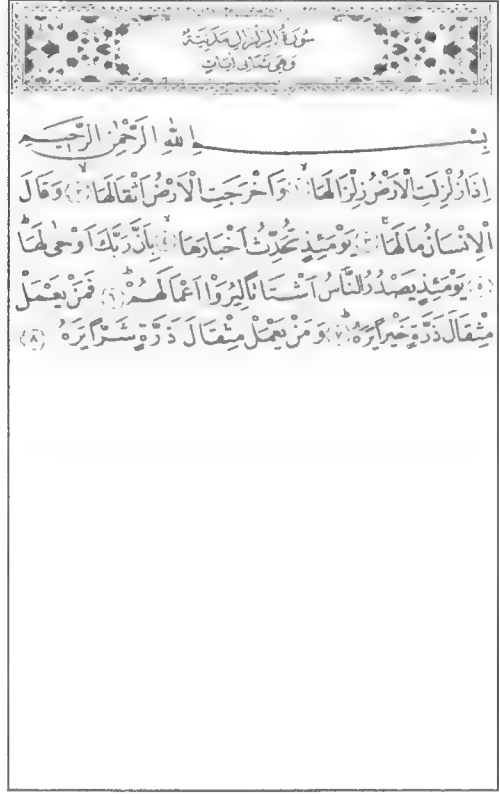 سُورَةُ الزِّلْزَالِ مَدَنِيَّةٌ
وَهِيَ ثَمَانِي اٰيَاتٍ
بِسْمِ اللّٰهِ الرَّحْمٰنِ الرَّحِيْمِ
اِذَا زُلْزِلَتِ الْاَرْضُ زِلْزَالَهَا ۙ﴿١﴾ وَاَخْرَجَتِ الْاَرْضُ اَثْقَالَهَا ۙ﴿٢﴾ وَقَالَ
الْاِنْسَانُ مَالَهَا ۚ﴿٣﴾ يَوْمَئِذٍ تُحَدِّثُ اَخْبَارَهَا ۙ﴿٤﴾ بِاَنَّ رَبَّكَ اَوْحٰى لَهَا ؕ
﴿٥﴾ يَوْمَئِذٍ يَصْدُرُ النَّاسُ اَشْتَاتًا لِيُرَوْا اَعْمَالَهُمْ ؕ﴿٦﴾ فَمَنْ يَعْمَلْ
مِثْقَالَ ذَرَّةٍ خَيْرًا يَرَهُ ؕ﴿٧﴾ وَمَنْ يَعْمَلْ مِثْقَالَ ذَرَّةٍ شَرًّا يَرَهُ ﴿٨﴾